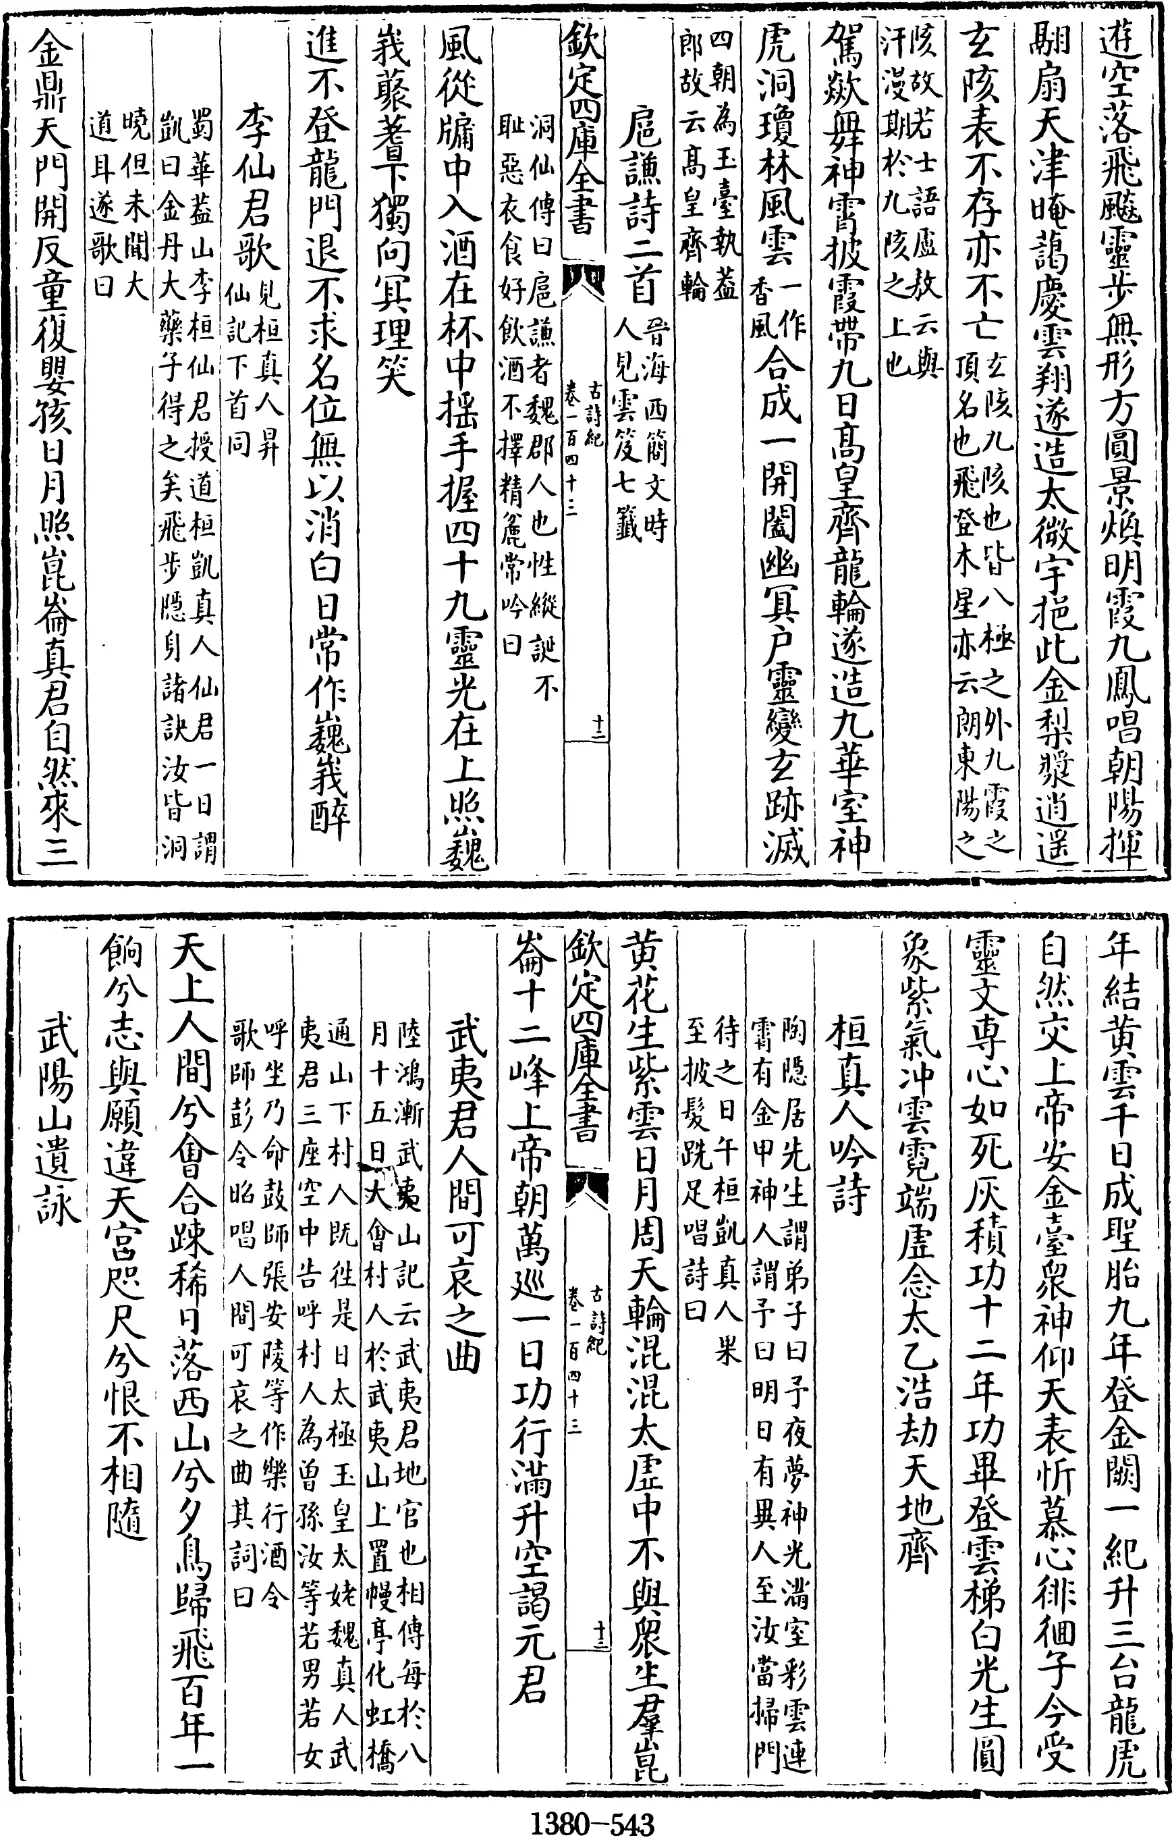 遊空落飛飈靈步無形方圓景煥明霞九鳳唱朝陽揮
翮扇天津晻藹慶雲翔遂造太微宇挹此金梨漿逍遥
玄陔表不存亦不亡玄陔九陔也皆八極之外九霞之
頂名也飛登木星亦云朗東陽之
陔故若士語盧敖云與
汗漫期於九陔之上也
駕歘舞神霄披霞帶九日髙皇齊龍輪遂造九華室神
虎洞瓊林風雲一作
香風合成一開闔幽冥户靈變玄跡滅
四朝為玉臺執葢
郎故云髙皇齊輪
扈謙詩二首晉海西簡文時
人見雲笈七籤
欽定四庫全書
古詩紀
卷一百四十三
十二
洞仙傳曰扈謙者魏郡人也性縱誕不
耻惡衣食好飲酒不擇精麄常吟曰
風從牖中入酒在杯中揺手握四十九靈光在上照巍
峩藂蓍下獨向冥理笑
進不登龍門退不求名位無以消白日常作巍峩醉
李仙君歌見桓真人昇
仙記下首同
蜀華葢山李桓仙君授道桓凱真人仙君一日謂
凱曰金丹大藥子得之矣飛步隠身諸訣汝皆洞
曉但未聞大
道耳遂歌曰
金鼎天門開反童復嬰孩日月照崑崙真君自然來三
年結黄雲千日成聖胎九年登金闕一紀升三台龍虎
自然交上帝安金臺衆神仰天表忻慕心徘徊子今受
靈文専心如死灰積功十二年功畢登雲梯白光生圓
象紫氣冲雲霓端虚念太乙浩劫天地齊
桓真人吟詩
陶隠居先生謂弟子曰予夜夢神光滿室彩雲連
霄有金甲神人謂予曰明日有異人至汝當掃門
待之日午桓凱真人果
至披髮跣足唱詩曰
黄花生紫雲日月周天輪混混太虚中不與衆生羣崑
欽定四庫全書
古詩紀
卷一百四十三
十三
崙十二峰上帝朝萬巡一日功行滿升空謁元君
武夷君人間可哀之曲
陸鴻漸武夷山記云武夷君地官也相傳每於八
月十五日大會村人於武夷山上置幔亭化虹橋
通山下村人既徃是日太極玉皇太姥魏真人武
夷君三座空中告呼村人為曾孫汝等若男若女
呼坐乃命鼓師張安陵等作樂行酒令
歌師彭令昭唱人間可哀之曲其詞曰
天上人間兮㑹合踈稀日落西山兮夕鳥歸飛百年一
餉兮志與願違天宫咫尺兮恨不相隨
武陽山遺詠
1380-543